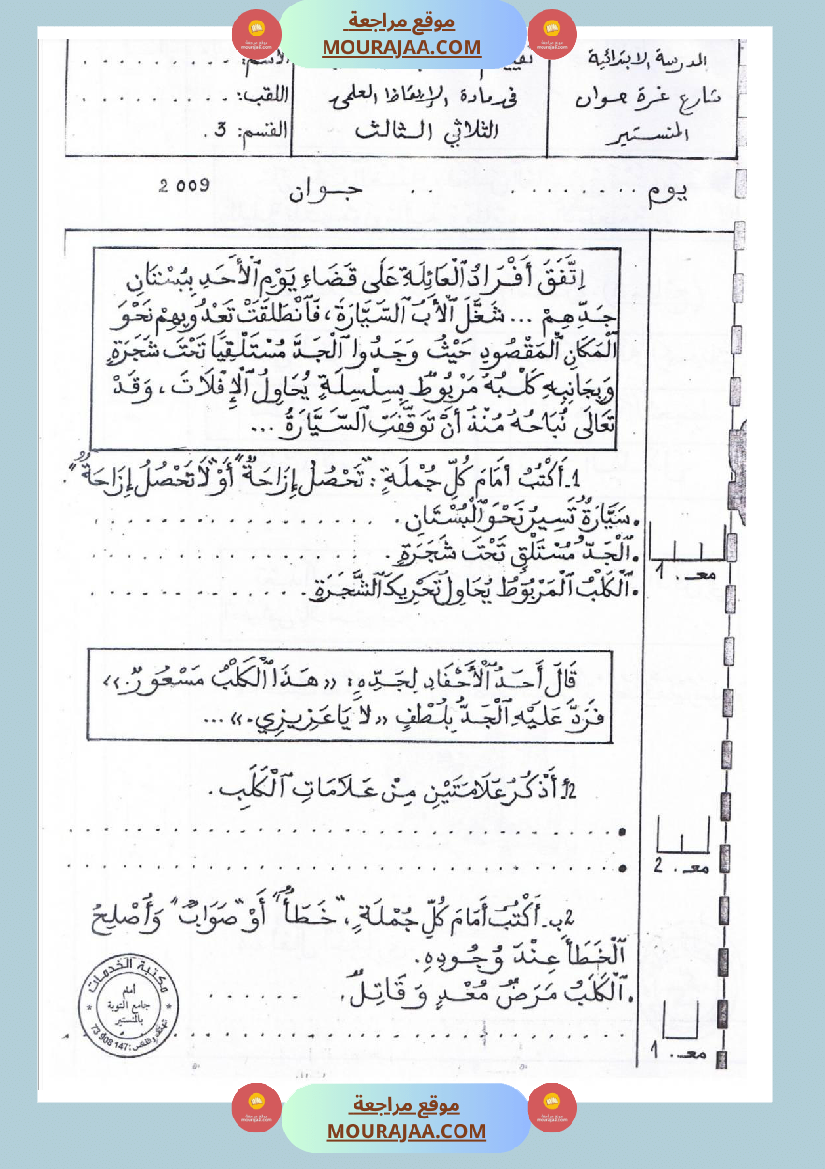 موقع مراجعة
MOURAJAA.COM
المدرسة الابتدائية
شارع غرة جوان
المنستير
في مادة الإيقاظ العلمي
الثلاثي الثالث
الاسم: . . . . . . . .
اللقب: . . . . . . . . .
القسم: 3 .
يوم . . . . . . . . . . . جوان 2009
اِتَّفَقَ أَفْرَادُ الْعَائِلَةِ عَلَى قَضَاءِ يَوْمِ الْأَحَدِ بِبُسْتَانِ
جَدِّهِمْ ... شَغَّلَ الْأَبُ السَّيَّارَةَ، فَانْطَلَقَتْ تَعْدُو بِهِمْ نَحْوَ
الْمَكَانِ الْمَقْصُودِ حَيْثُ وَجَدُوا الْجَدَّ مُسْتَلْقِيًا تَحْتَ شَجَرَةٍ
وَبِجَانِبِهِ كَلْبُهُ مَرْبُوطٌ بِسِلْسِلَةٍ يُحَاوِلُ الْإِفْلَاتَ، وَقَدْ
تَعَالَى نُبَاحُهُ مُنْذُ أَنْ تَوَقَّفَتِ السَّيَّارَةُ ...
1ـ أَكْتُبُ أَمَامَ كُلِّ جُمْلَةٍ: "تَحْصُلُ إِزَاحَةٌ" أَوْ "لَا تَحْصُلُ إِزَاحَةٌ".
• سَيَّارَةٌ تَسِيرُ نَحْوَ الْبُسْتَانِ. . . . . . . . . . . . . . . .
• الْجَدُّ مُسْتَلْقٍ تَحْتَ شَجَرَةٍ. . . . . . . . . . . . . . . .
• الْكَلْبُ الْمَرْبُوطُ يُحَاوِلُ تَحْرِيكَ الشَّجَرَةِ. . . . . . . . . . . .
معـ. 1
قَالَ أَحَدُ الْأَحْفَادِ لِجَدِّهِ: «هَذَا الْكَلْبُ مَسْعُورٌ.»
فَرَدَّ عَلَيْهِ الْجَدُّ بِلُطْفٍ «لَا يَا عَزِيزِي.» ...
2أ أَذْكُرُ عَلَامَتَيْنِ مِنْ عَلَامَاتِ الْكَلَبِ.
• . . . . . . . . . . . . . . . . . . . .
• . . . . . . . . . . . . . . . . . . . .
معـ. 2
2ب ـ أَكْتُبُ أَمَامَ كُلِّ جُمْلَةٍ، "خَطَأٌ" أَوْ "صَوَابٌ" وَأُصْلِحُ
الْخَطَأَ عِنْدَ وُجُودِهِ.
• الْكَلَبُ مَرَضٌ مُعْدٍ وَ قَاتِلٌ. . . . . . .
. . . . . . . . . . . . . . . . . . . .
معـ. 1
مكتبة الخدمات
أمام
جامع التوبة
بالمنستير
موقع مراجعة
MOURAJAA.COM